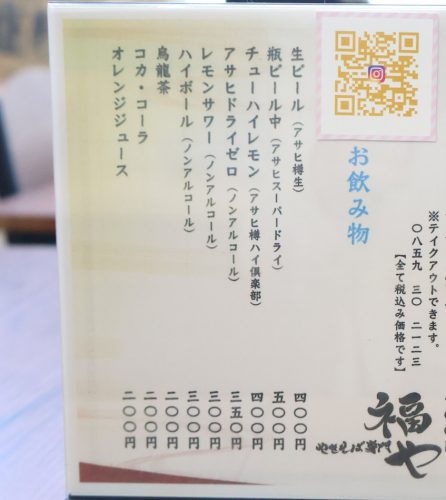 ※テイクアウトできます。
〇八五九 三〇 二一二三
【全て税込み価格です】
やきそば専門
福や
お飲み物
生ビール（アサヒ樽生） 四〇〇円
瓶ビール中（アサヒスーパードライ） 五〇〇円
チューハイレモン（アサヒ樽ハイ倶楽部） 四〇〇円
アサヒドライゼロ（ノンアルコール） 三五〇円
レモンサワー（ノンアルコール） 三〇〇円
ハイボール（ノンアルコール） 三〇〇円
烏龍茶 二〇〇円
コカ・コーラ 二〇〇円
オレンジジュース 二〇〇円